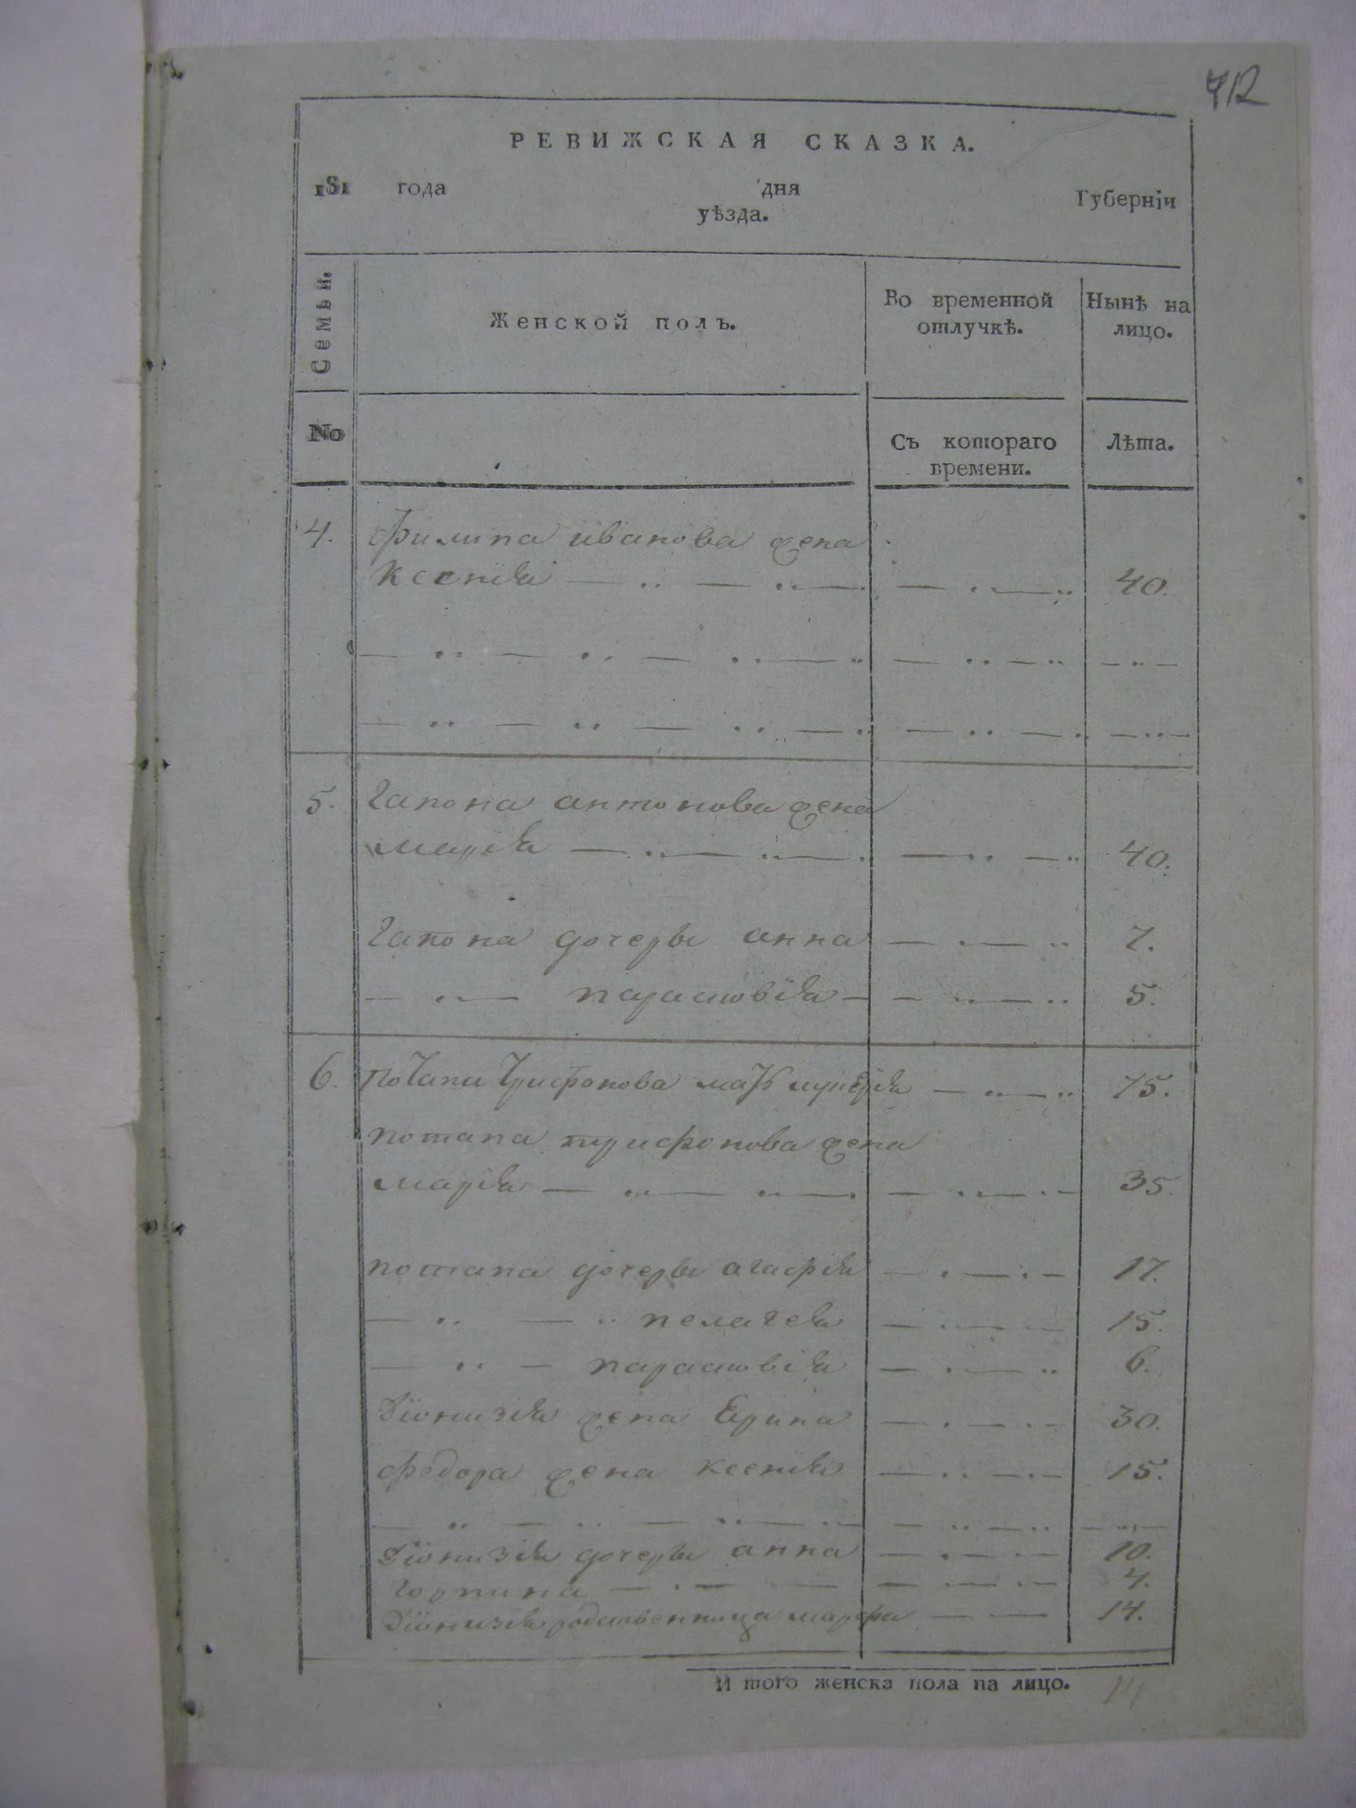 712
РЕВИЖСКАЯ СКАЗКА.
181 года дня Губернїи
уѣзда.
Семьи.
Женской полъ.
Во временной отлучкѣ.
Нынѣ на лицо.
№
Съ котораго времени.
Лѣта.
4. Филипа иванова жена
Ксенїя 40.
5. Гапона антонова жена
марїя 40.
Гапона дочери анна 7.
парасковїя 5.
6. Потапа Трифонова мать 75.
потапа трифонова жена
марїя 35.
потапа дочери агафїя 17.
пелагея 15.
парасковїя 6.
Дїонизїя жена Ерина 30.
Федора жена ксенїя 15.
Дїонизїя дочери анна 10.
горпина 4.
Дїонизїя родственница марфа 14.
И того женска пола на лицо. 14